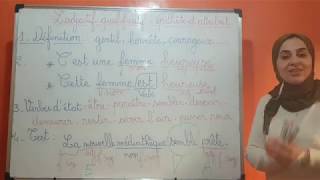 L'adjectif qualificatif épithète et attribut
1. Définition: gentil, honnête, courageux
2. * C'est une femme heureuse.
* Cette femme est heureuse.
3. Verbes d'état: être, paraître, sembler, devenir
demeurer, rester, avoir l'air, passer pour
4. Test: La nouvelle médiathèque semble prête.